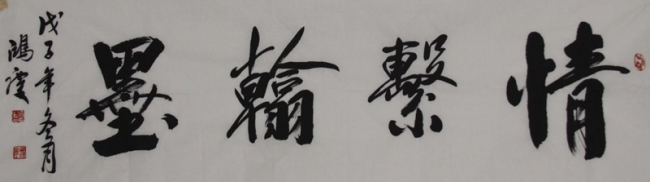 情繫翰墨
戊子年冬月
鴻雯